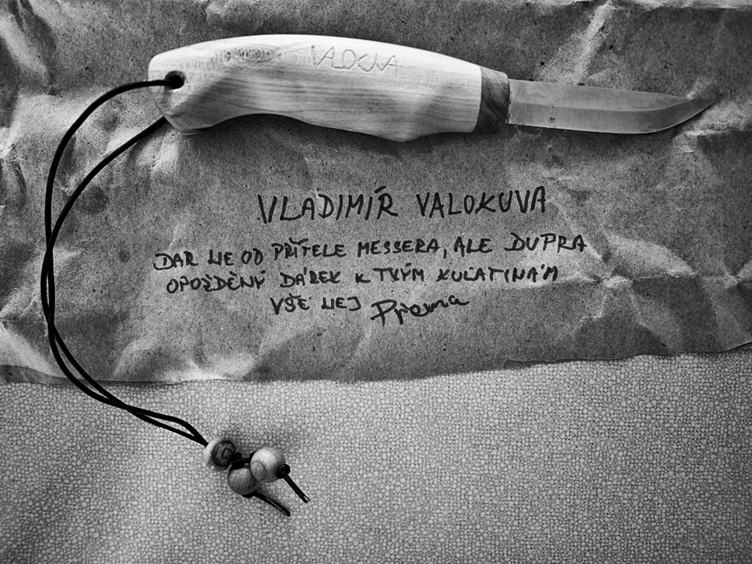 VALOKUVA
VLADIMÍR VALOKUVA
DAR NE OD PŘÍTELE MESSERA, ALE DUPRA
OPOŽDĚNÝ DÁREK K TVÝM KULATINÁM
VŠE NEJ Přema